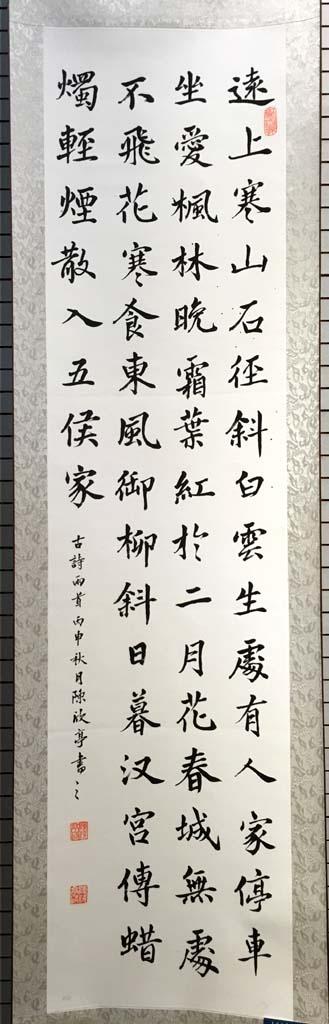 遠上寒山石徑斜白雲生處有人家停車
坐愛楓林晚霜葉紅於二月花春城無處
不飛花寒食東風御柳斜日暮汉宮傳蜡
燭輕煙散入五侯家
古詩兩首丙申秋月陳欣亭書